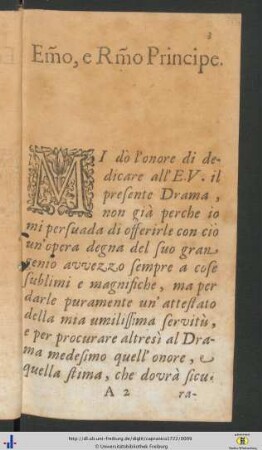 3
Em̃o, e Rm̃o Principe.
MI dò l'onore di de-
dicare all'E.V. il
presente Drama,
non già perche io
mi persuada di offerirle con ciò
un'opera degna del suo gran
genio avvezzo sempre a cose
sublimi e magnifiche, ma per
darle puramente un'attestato
della mia umilissima servitù,
e per procurare altresì al Dra-
ma medesimo quell'onore, e
quella stima, che dovrà sicu-
A 2 ra-
© Universitätsbibliothek Freiburg